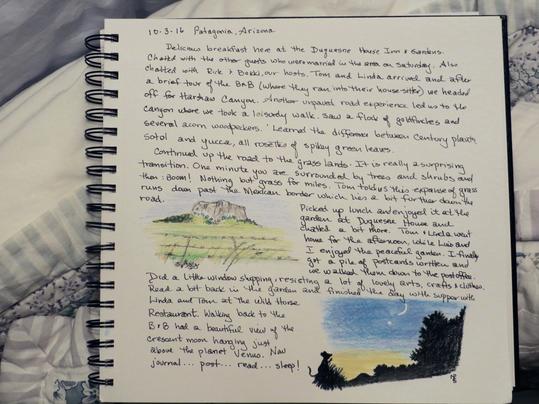 10-3-16 Patagonia, Arizona
Delicious breakfast here at the Duquesne House Inn & Gardens.
Chatted with the other guests who were married in the area on Saturday. Also
chatted with Rick & Bekki, our hosts. Tom and Linda arrived and after
a brief tour of the B&B (where they ran into their house-sitter) we headed
off for Harshaw Canyon. Another unpaved road experience led us to the
canyon where we took a leisurely walk. Saw a flock of goldfinches and
several acorn woodpeckers. Learned the difference between Century plants
sotol and yucca, all rosettes of spikey green leaves.
Continued up the road to the grass lands. It is really a surprising
transition. One minute you are surrounded by trees and shrubs and
then: Boom! Nothing but grass for miles. Tom told us this expanse of grass
runs down past the Mexican border which lies a bit further down the
road.
Picked up lunch and enjoyed it at the
garden at Duquesne House and
chatted a bit more. Tom & Linda went
home for the afternoon, while Luis and
I enjoyed the peaceful garden. I finally
got a pile of postcards written and
we walked them down to the post office.
Did a little window shopping, resisting a lot of lovely arts, crafts & clothes.
Read a bit back in the garden and finished the day with supper with
Linda and Tom at the Wild Horse
Restaurant. Walking back to the
B&B had a beautiful view of the
crescent moon hanging just
above the planet Venus. Now
journal... post... read... sleep!